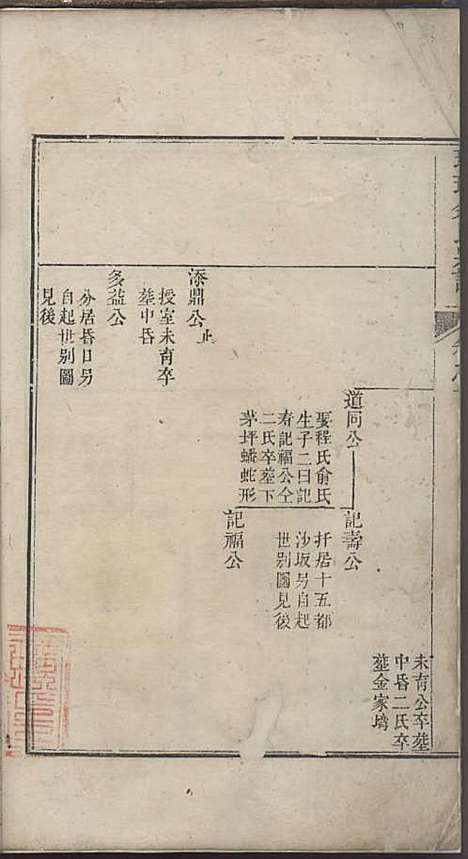 未育公卒塟
中昏二氏卒
塟金家塝
道同公
娶程氏俞氏
生子二曰記
壽記福公仝
二氏卒塟下
茅坪蟠蛇形
記壽公
扦居十五都
沙坂另自起
世别圖見後
記福公
添鼎公止
授室未育卒
塟中昏
多益公
分居昏口另
自起世别圖
見後